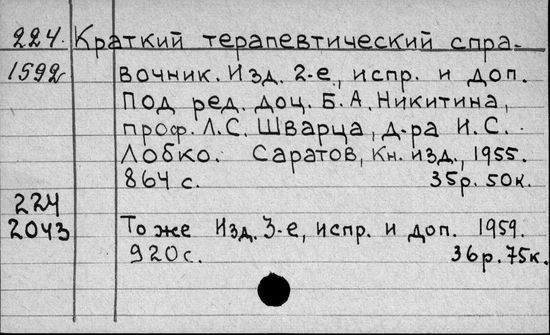 224. Краткий терапевтический спра-
1592 вочник. Изд. 2-е, испр. и доп.
Под ред. доц. Б. А. Никитина,
проф. Л. С. Шварца, д-ра И. С.
Лобко. Саратов, Кн. изд., 1955.
864 с. 35р. 50к.
224
2043 То же Изд. 3-е, испр. и доп. 1959.
920с. 36р. 75к.